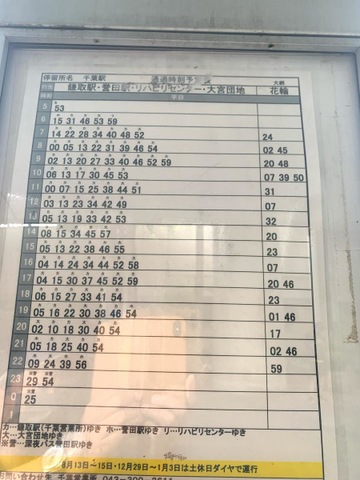 停留所名 千葉駅 通過時刻予定表
大網
行先 鎌取駅・誉田駅・リハビリセンター・大宮団地 花輪
時刻 平日
5 53
6 15 31 46 53 59
7 14 22 28 34 40 48 52 24
8 00 05 13 22 31 39 46 54 02 45
9 02 13 20 27 33 40 46 52 59 20 48
10 06 13 17 30 45 53 07 39 50
11 00 07 15 25 38 44 51 31
12 03 13 23 34 42 49 07
13 05 13 19 33 42 53 32
14 08 15 34 45 57 20
15 05 13 22 38 46 55 23
16 04 14 24 34 44 52 58 07
17 04 15 30 37 45 52 59 20 46
18 06 15 27 33 41 54 23
19 05 16 22 30 38 46 54 01 46
20 02 10 18 30 40 54 17
21 05 18 25 40 54 02 46
22 09 24 39 56 59
23 深夜 深夜
29 54
0 25
1
カ…鎌取駅(千葉営業所)ゆき ホ…誉田駅ゆき リ…リハビリセンターゆき
大…大宮団地ゆき
※誉…深夜バス誉田駅ゆき
8月13日～15日・12月29日～1月3日は土休日ダイヤで運行
お問い合わせ先 千葉営業所